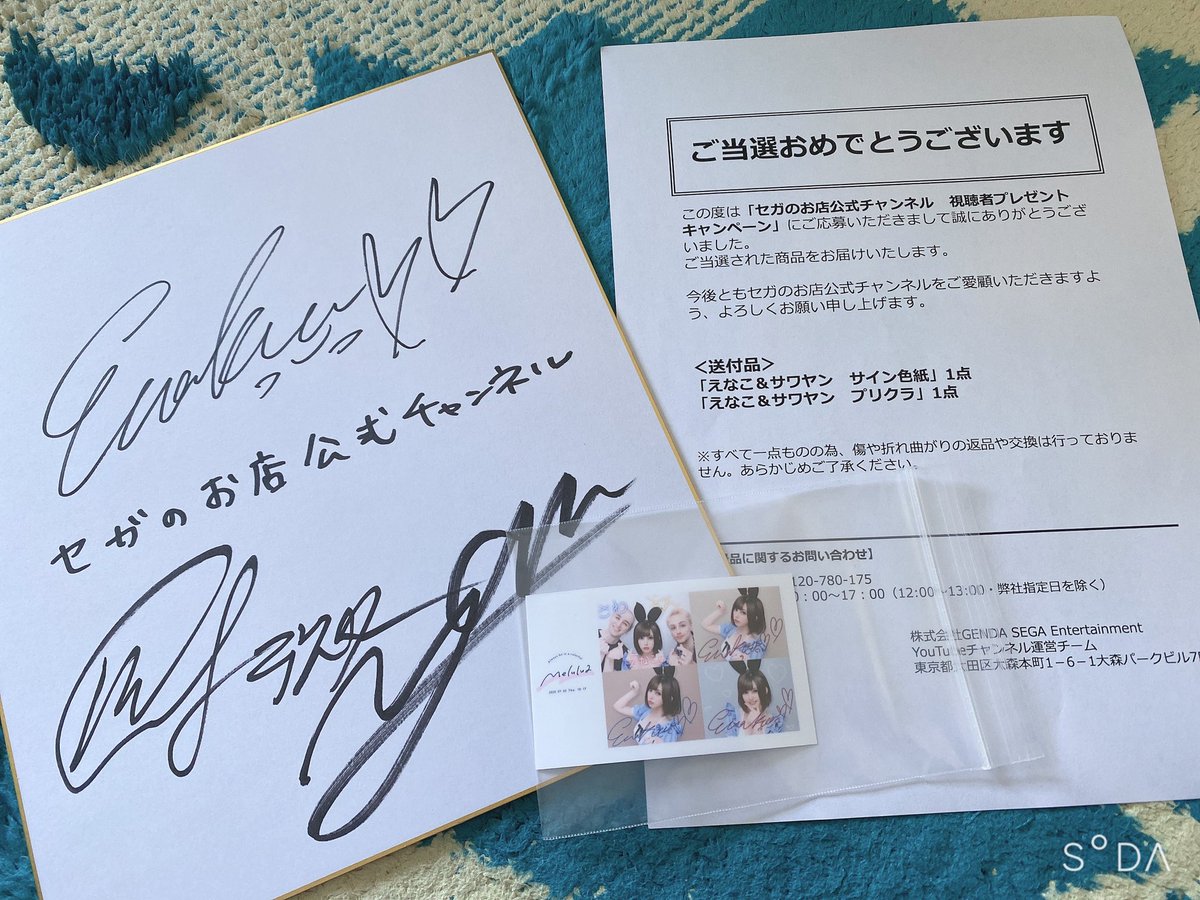 Enako
セガのお店公式チャンネル
ご当選おめでとうございます
この度は「セガのお店公式チャンネル　視聴者プレゼント
キャンペーン」にご応募いただきまして誠にありがとうござ
いました。
ご当選された商品をお届けいたします。
今後ともセガのお店公式チャンネルをご愛顧いただきますよ
う、よろしくお願い申し上げます。
＜送付品＞
「えなこ＆サワヤン　サイン色紙」1点
「えなこ＆サワヤン　プリクラ」1点
※すべて一点ものの為、傷や折れ曲がりの返品や交換は行っておりま
せん。あらかじめご了承ください。
品に関するお問い合わせ】
120-780-175
0：00～17：00（12:00～13:00・弊社指定日を除く）
株式会社GENDA SEGA Entertainment
YouTubeチャンネル運営チーム
東京都大田区大森本町1－6－1大森パークビル7
Melulu2
SODA